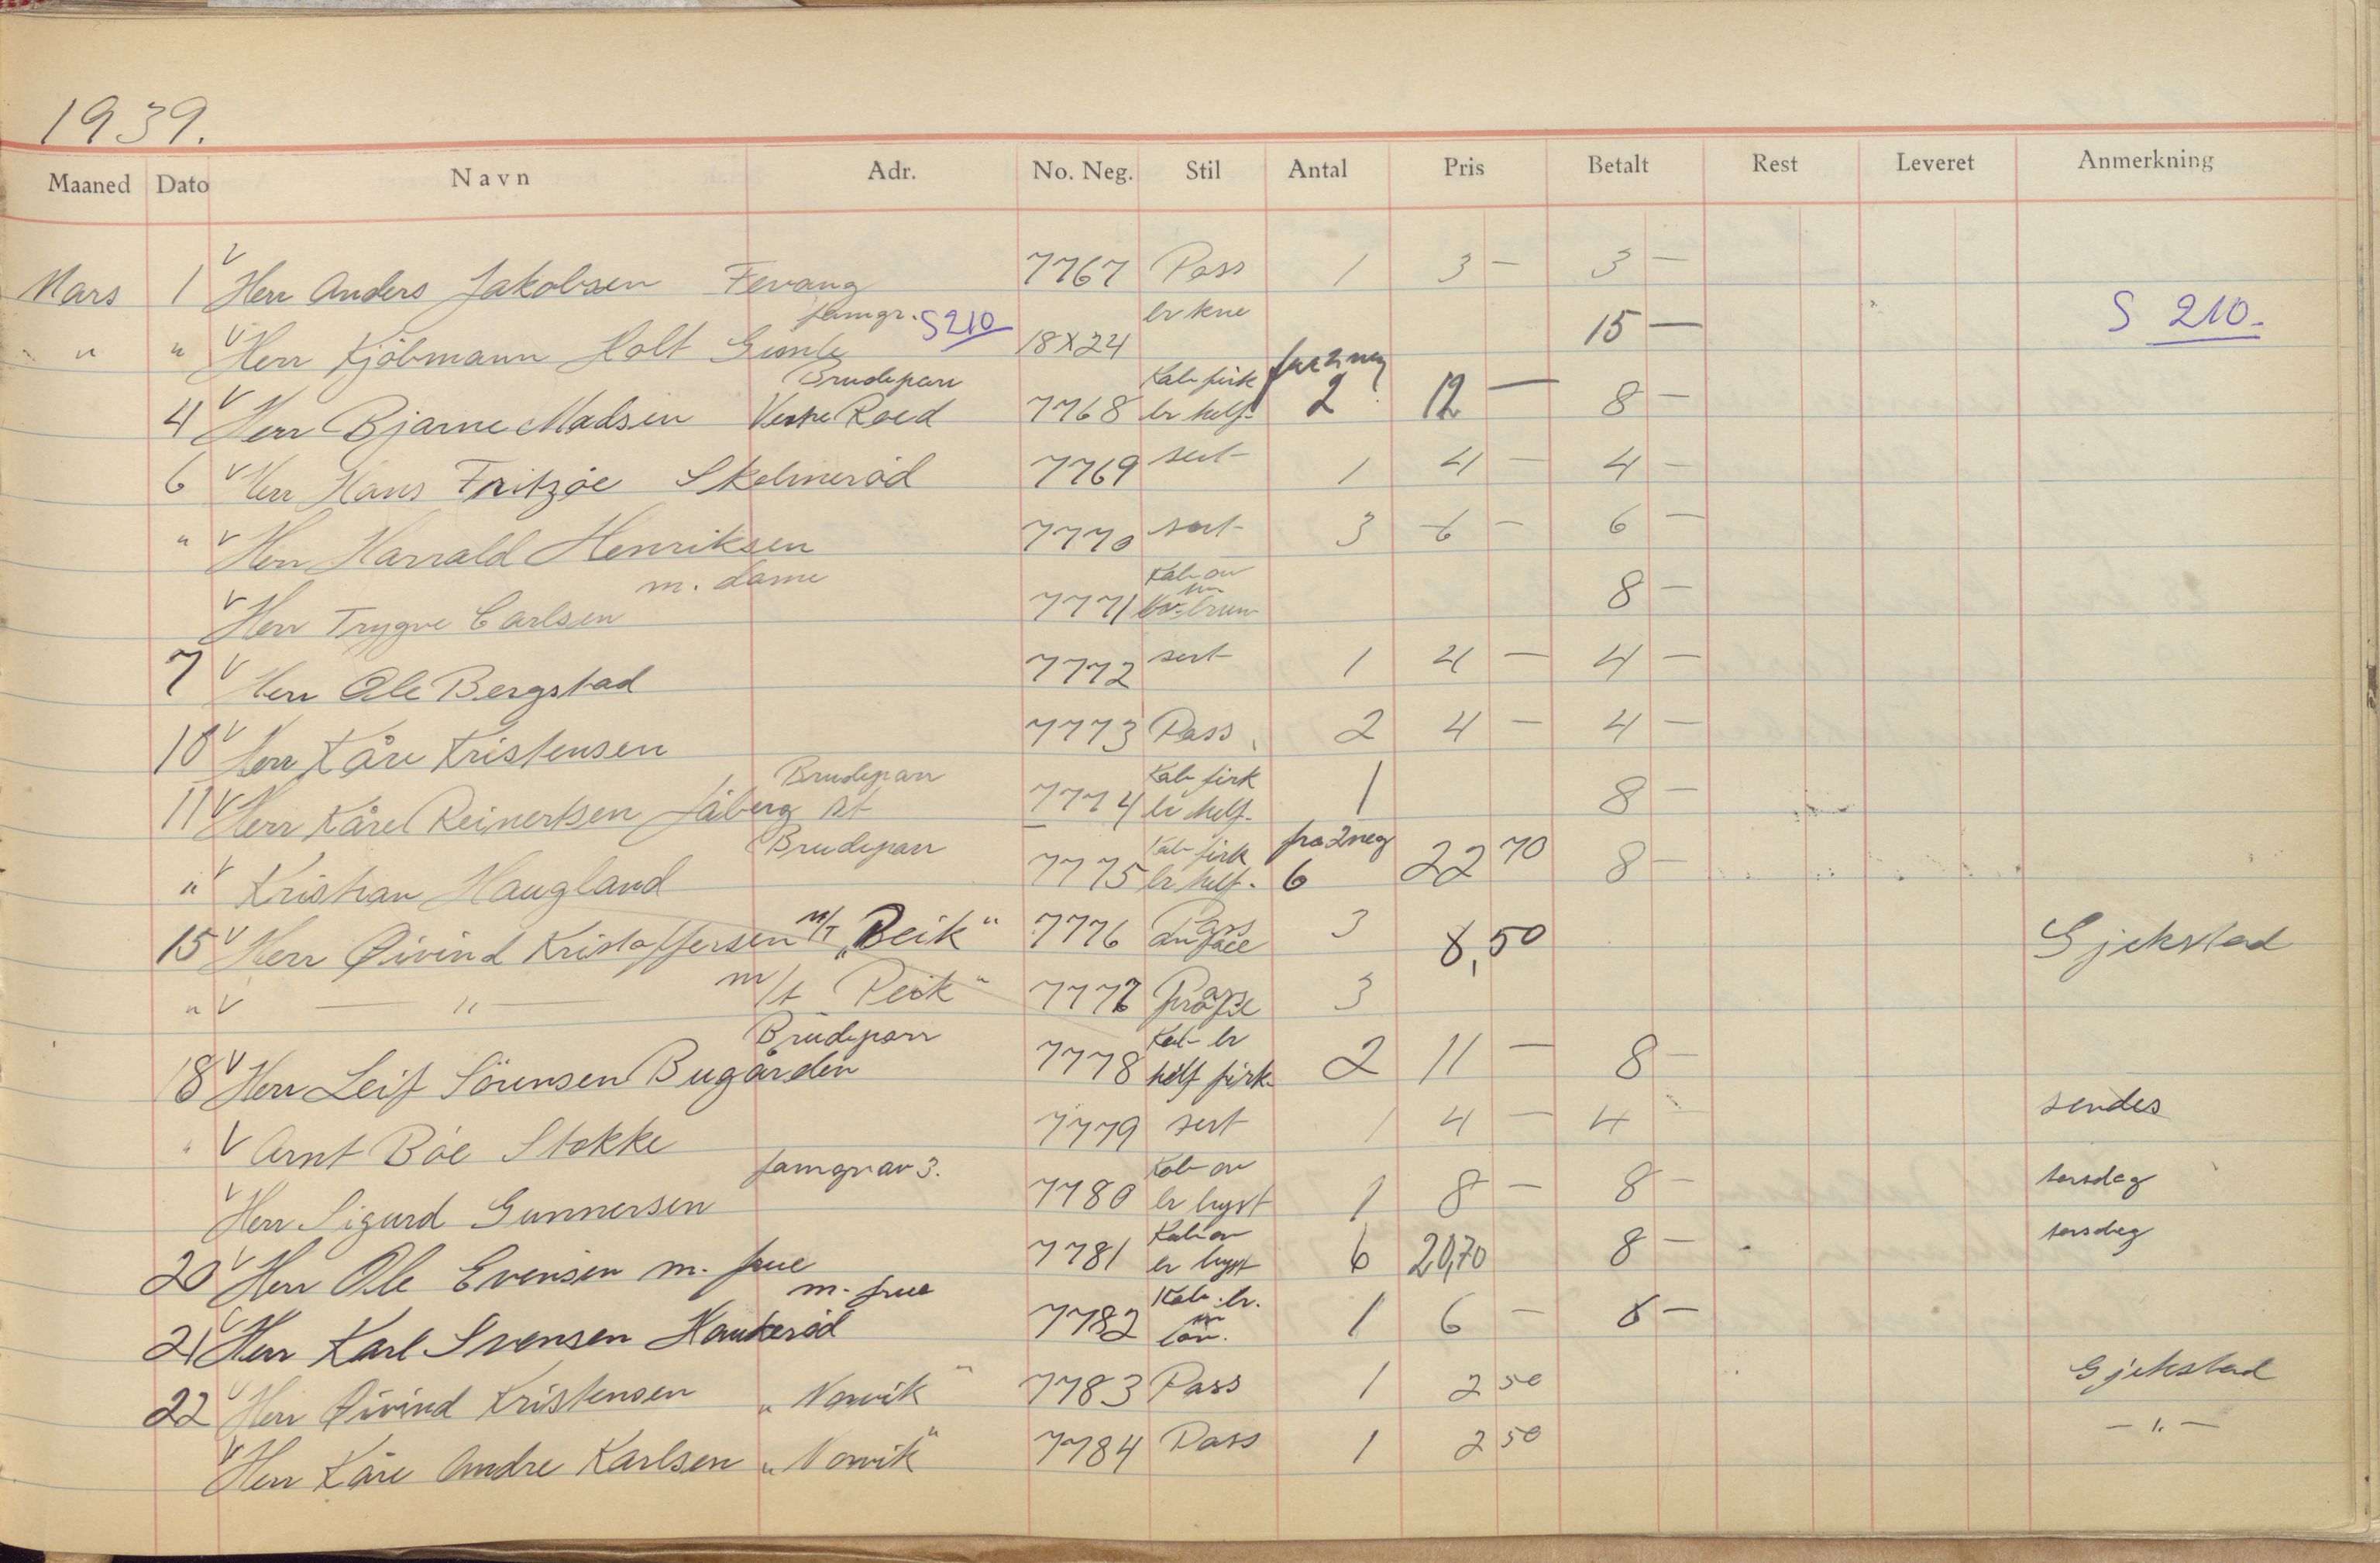 1939.
Maaned Dato Navn Adr. No. Neg. Stil Antal Pris Betalt Rest Leveret Anmerkning
Mars 1 v Herr Anders Jakobsen Fevang 7767 Pass 1 3 — 3 —
famgr. S 210 br kne
" " v Herr Kjöbmann Holt Gimle 18x24 15 — S 210.
Brudepar Kab firk fra 2 neg
4 v Herr Bjarne Madsen Vestre Roed 7768 br helf. 2 12 — 8 —
6 v Herr Hans Fritzöe Skelmeröd 7769 sert 1 4 — 4 —
" v Herr Harrald Henriksen 7770 sert 3 6 — 6 —
m. dame Kab ov
v Herr Trygve Carlsen 7771 8 —
7 v Herr Ole Bergstad 7772 sert 1 4 — 4 —
10 v Herr Kåre Kristensen 7773 Pass 2 4 — 4 —
Brudepar Kab firk
11 v Herr Kårel Reinertsen Jåberg st 7774 br helf. 1 8 —
Brudepar Kab firk fra 2 neg
" v Kristian Haugland 7775 br helf. 6 22 70 8 —
15 v Herr Øivind Kristoffersen m/T „Beik" 7776 Pass en face 3 8,50 Gjekstad
" v — " — m/t Peik" 7777 Pass profil 3
Brudeparr Kab br
18 v Herr Leif Sörensen Bugården 7778 helf firk. 2 11 — 8 —
" v Arnt Böe Stokke 7779 sert 1 4 — 4 — sendes
famgr av 3. Kab ov
v Herr Sigurd Gunnersen 7780 br lyst 1 8 — 8 — torsdag
Kab ov
20 v Herr Ole Evensen m. frue 7781 br lyst 6 20,70 8 — torsdag
m. frue Kab. br.
21 v Herr Karl Svensen Haukeröd 7782 1 6 — 6 —
22 v Herr Øivind Kristensen „Norvik" 7783 Pass 1 2 50 Gjekstad
v Herr Kåre Andre Karlsen „Norvik" 7784 Pass 1 2 50 — " —